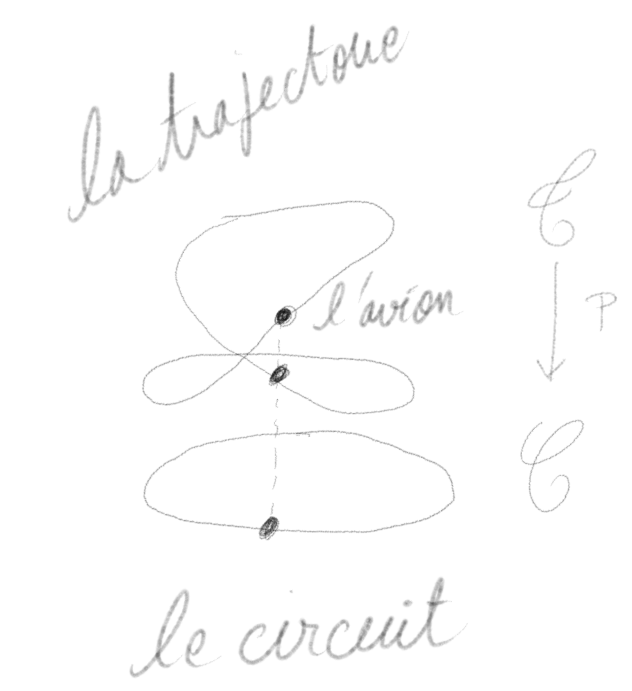 la trajectoire
l'avion
𝒞
P
𝒞
le circuit